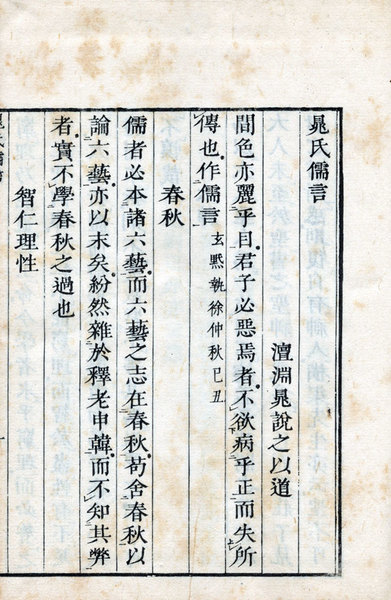 晁氏儒言
澶淵晁說之以道
間色亦麗乎目君子必惡焉者不欲病乎正而失所
傳也作儒言
玄黓執徐仲秋己丑
春秋
儒者必本諸六藝而六藝之志在春秋苟舍春秋以
論六藝亦以末矣紛然雜於釋老申韓而不知其弊
者實不學春秋之過也
智仁理性
晁氏儒言
一